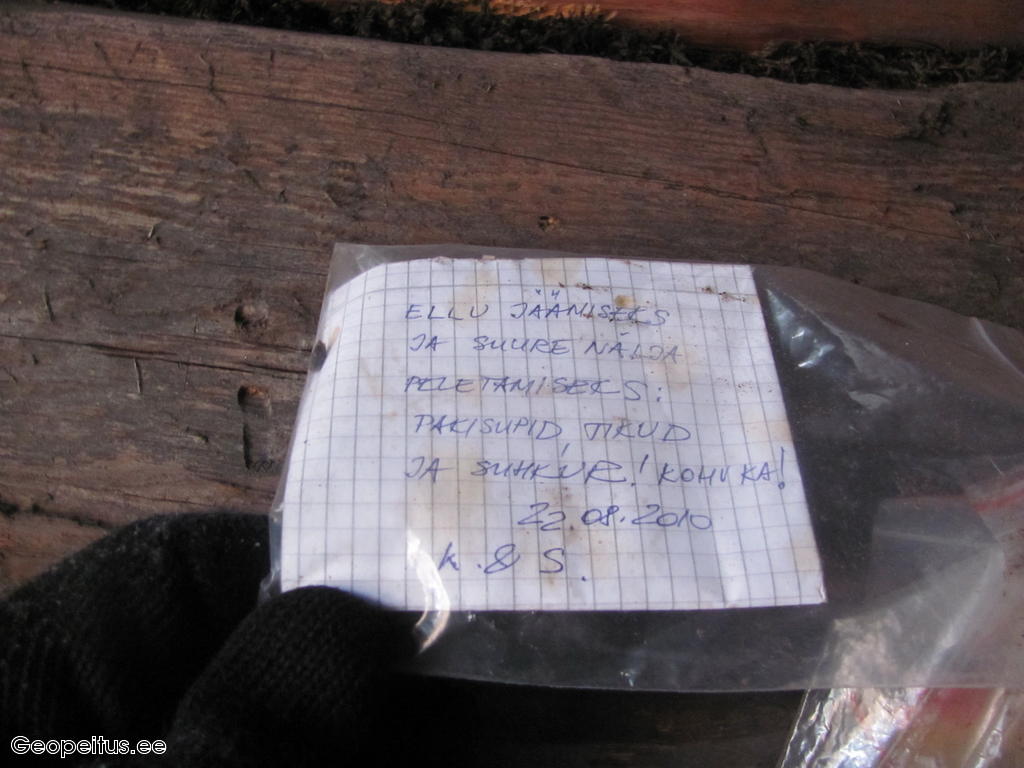 ELLU JÄÄMISEKS
JA SUURE NÄLJA
PELETAMISEKS:
PAKISUPID, TIKUD
JA SUHKUR! KOHV KA!
22.08.2010
K. & S.
Geopeitus.ee